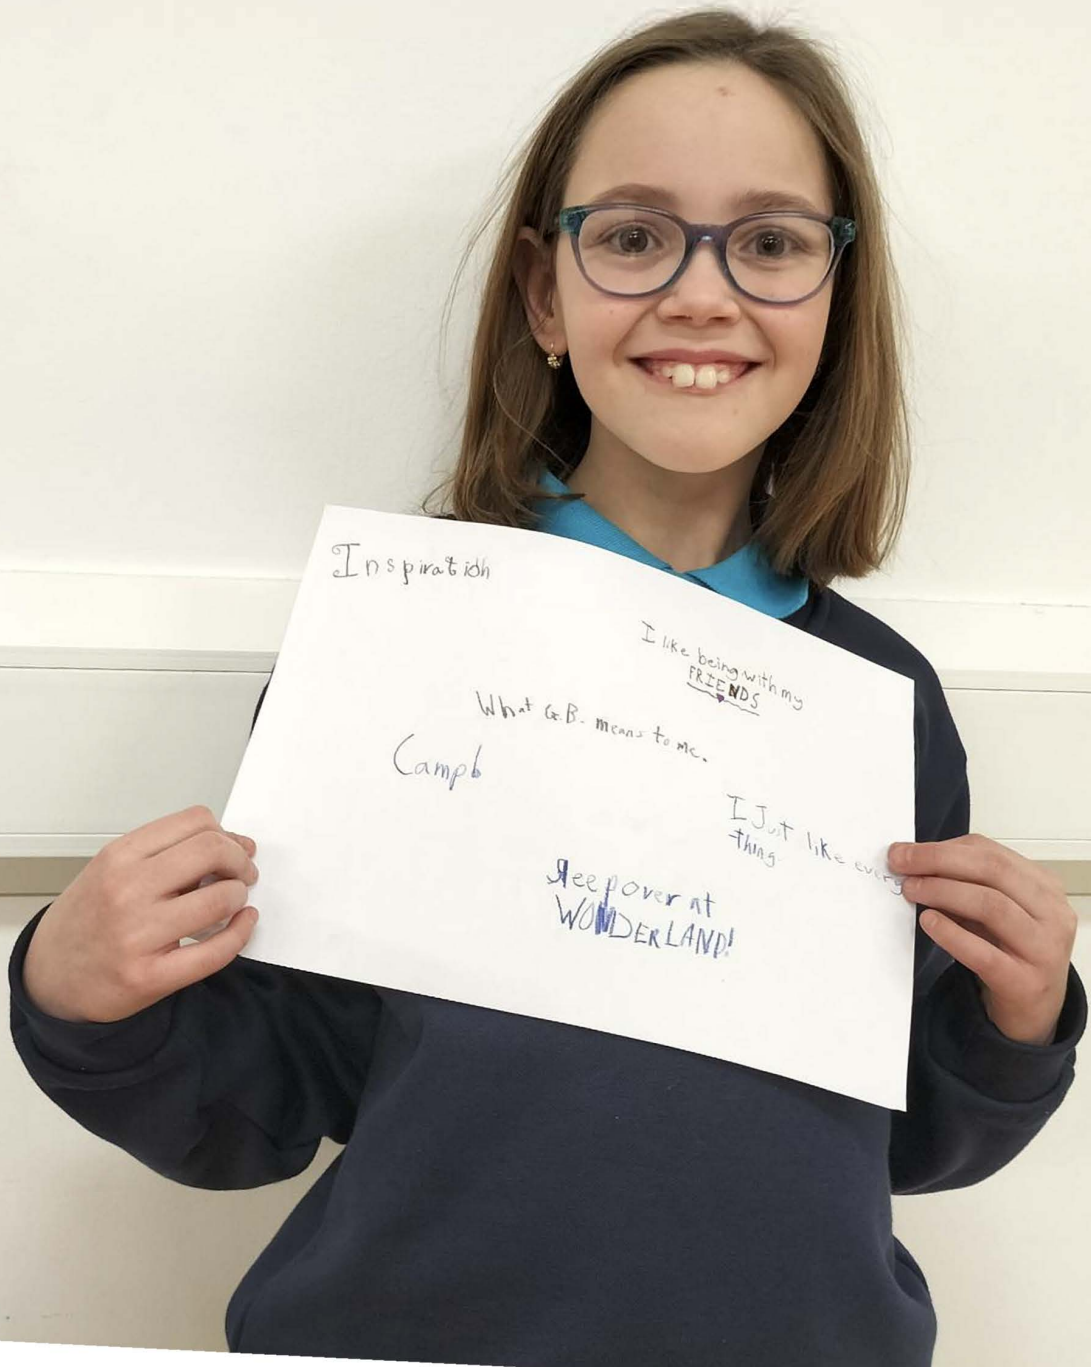 Inspiration
I like being with my
FRIENDS
What G.B. means to me.
Campb
I Just like every
thing.
Sleepover at
WONDERLAND!